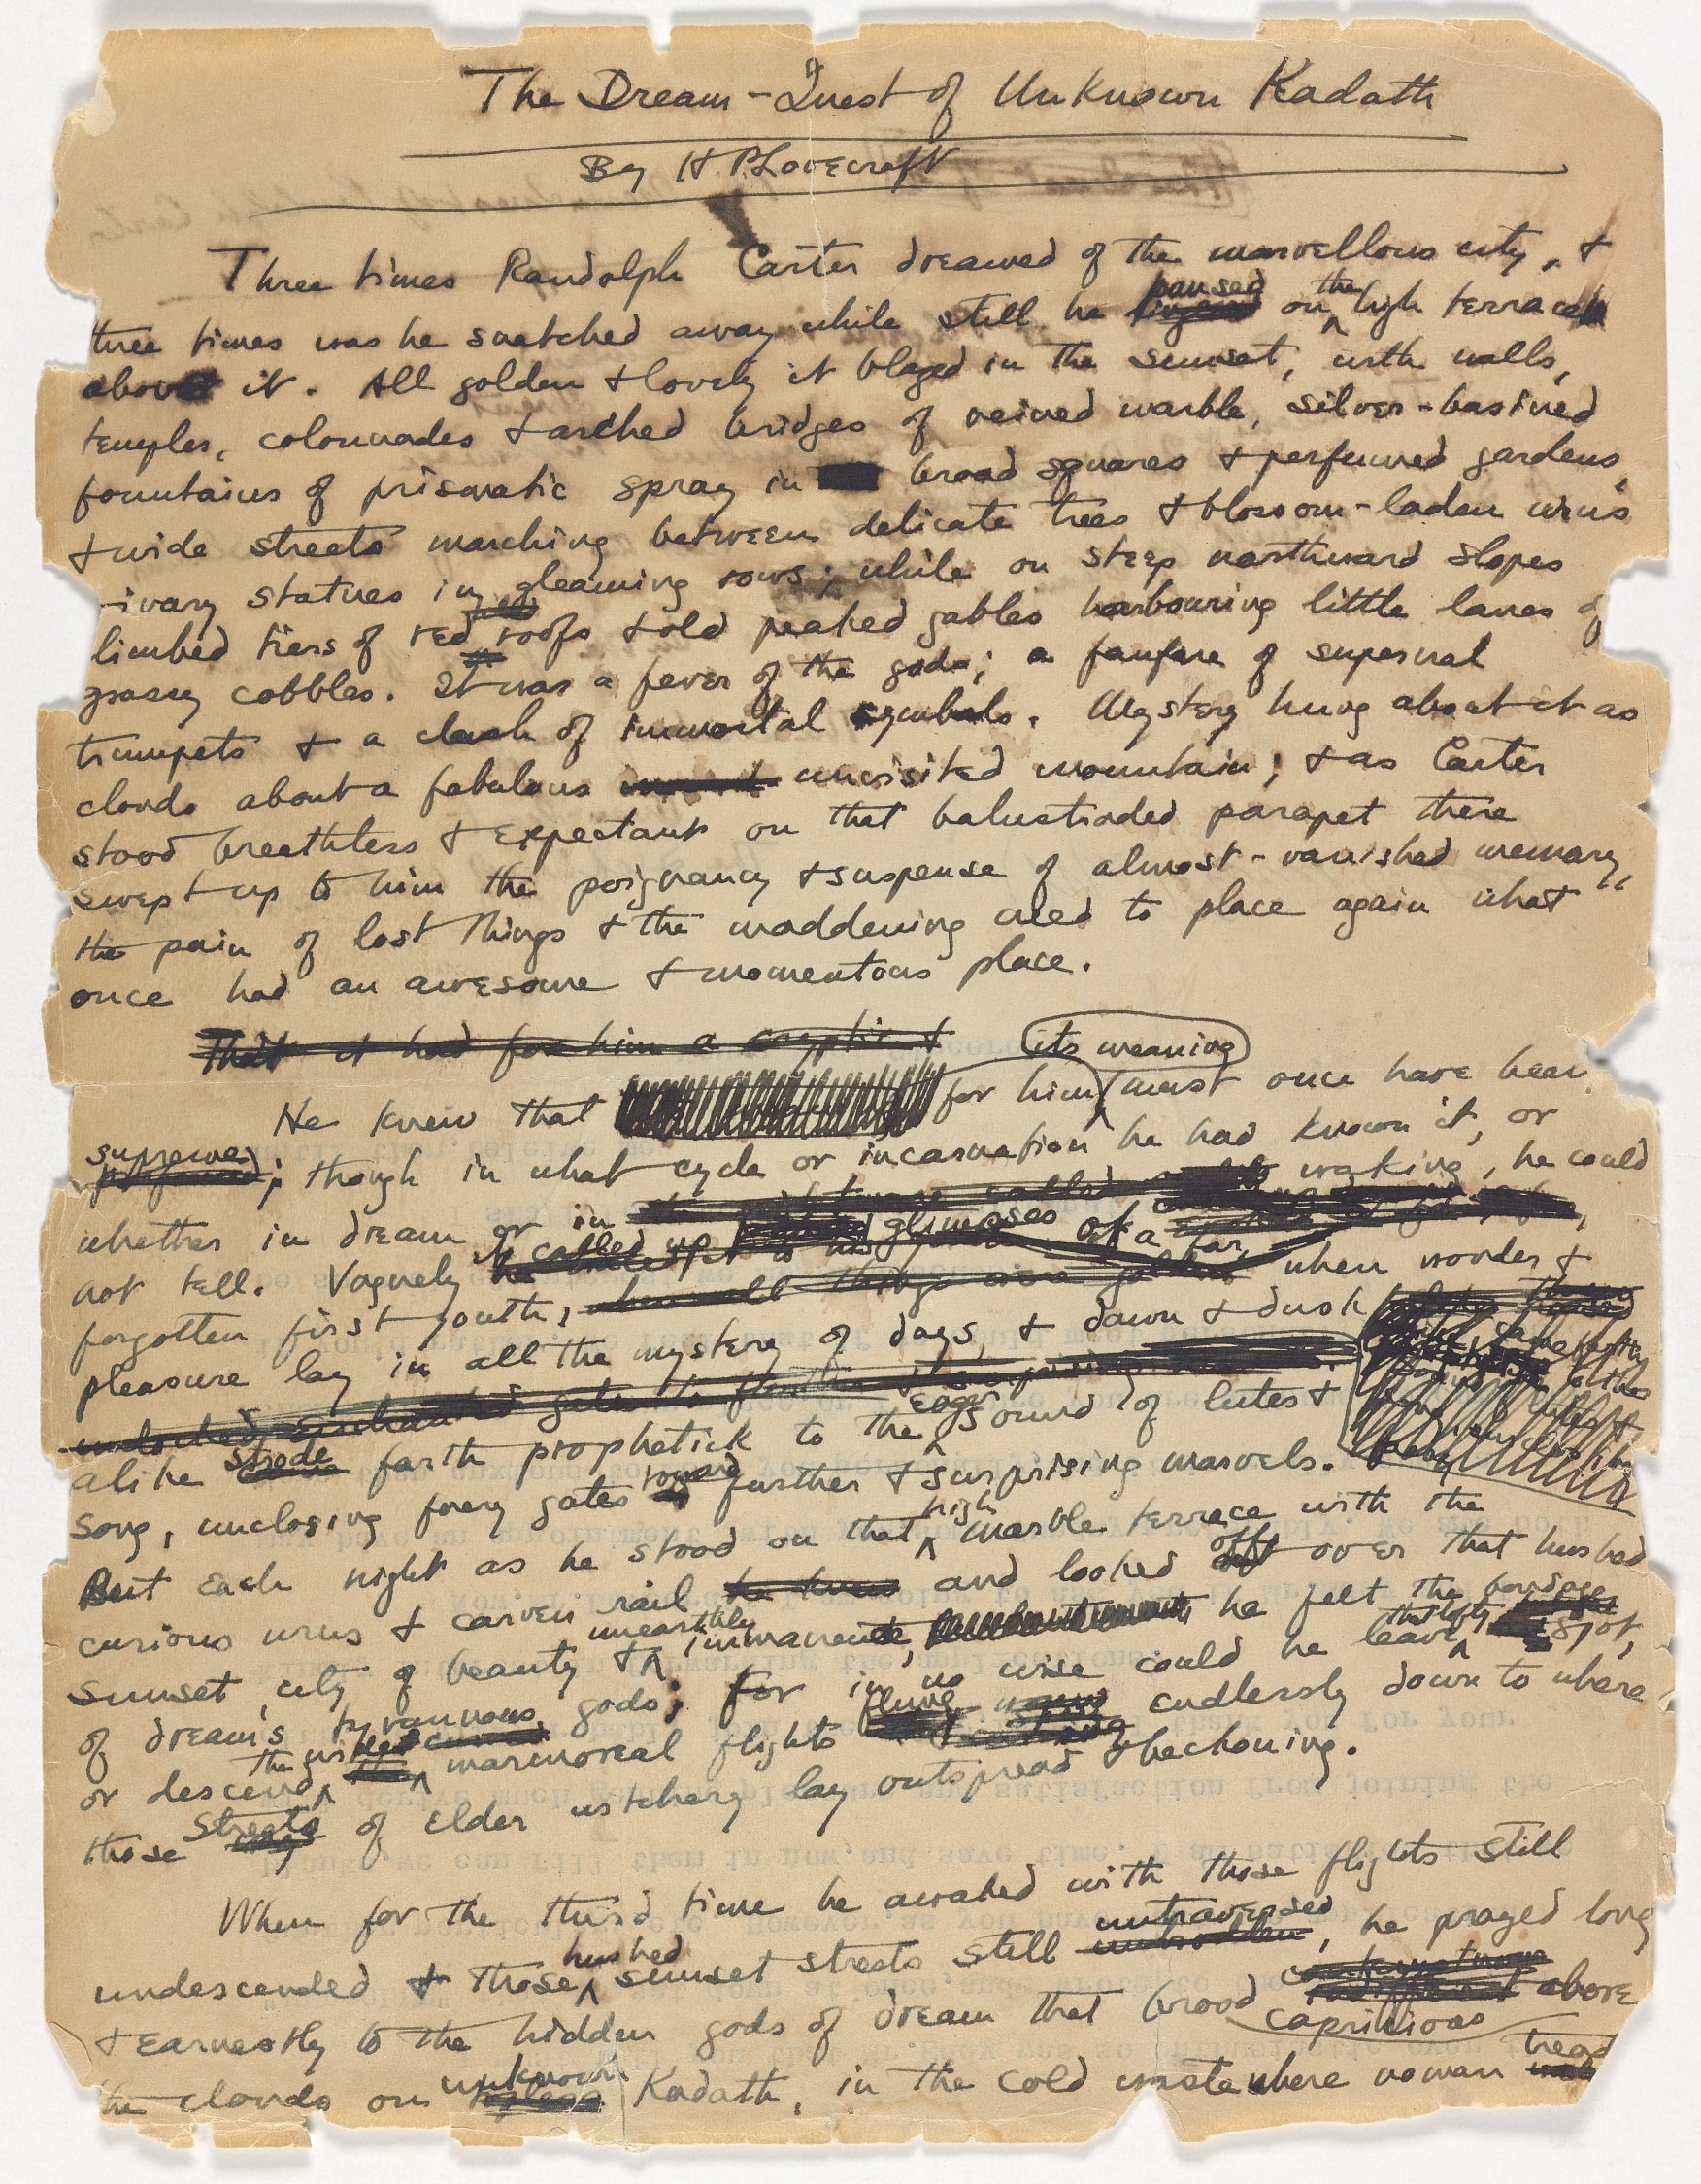 The Dream-Quest of Unknown Kadath
By H P. Lovecraft
Three times Randolph Carter dreamed of the marvellous city, &
three times was he snatched away while still he paused on the high terrace
above it. All golden & lovely it blazed in the sunset, with walls,
temples, colonnades & arched bridges of veined marble, silver-basined
fountains of prismatic spray in broad squares & perfumed gardens,
& wide streets marching between delicate trees & blossom-laden urns
ivary statues in gleaming rows; while on steep northward slopes
limbed tiers of red roofs & old peaked gables harbouring little lanes of
grassy cobbles. It was a fever of the gods; a fanfare of supernal
trumpets & a clash of immortal cymbals. Mystery hung about it as
clouds about a fabulous unvisited mountain; & as Carter
stood breathless & expectant on that balustraded parapet there
swept up to him the poignancy & suspense of almost-vanished memory,
the pain of lost things & the maddening need to place again what
once had an awesome & momentous place.
That it had for him a cryptic &
He knew that for him its meaning must once have been
supreme; though in what cycle or incarnation he had known it, or
whether in dream or in waking, he could
not tell. Vaguely it called up glimpses of a far,
forgotten first youth, when wonder &
pleasure lay in all the mystery of days, & dawn & dusk
alike strode forth prophetick to the eager sound of lutes &
song, unclosing faery gates toward further & surprising marvels.
But each night as he stood on that high marble terrace with the
curious urns & carven rail and looked off over that hushed
sunset city of beauty & unearthly immanence, he felt the bondage
of dream's tyrannous gods; for in no wise could he leave that lofty spot,
or descend the wide marmoreal flights flung endlessly down to where
those streets of elder witchery lay outspread & beckoning.
When for the third time he awaked with those flights still
undescended & those hushed sunset streets still untraversed, he prayed long
& earnestly to the hidden gods of dream that brood capricious above
the clouds on unknown Kadath, in the cold waste where no man treads